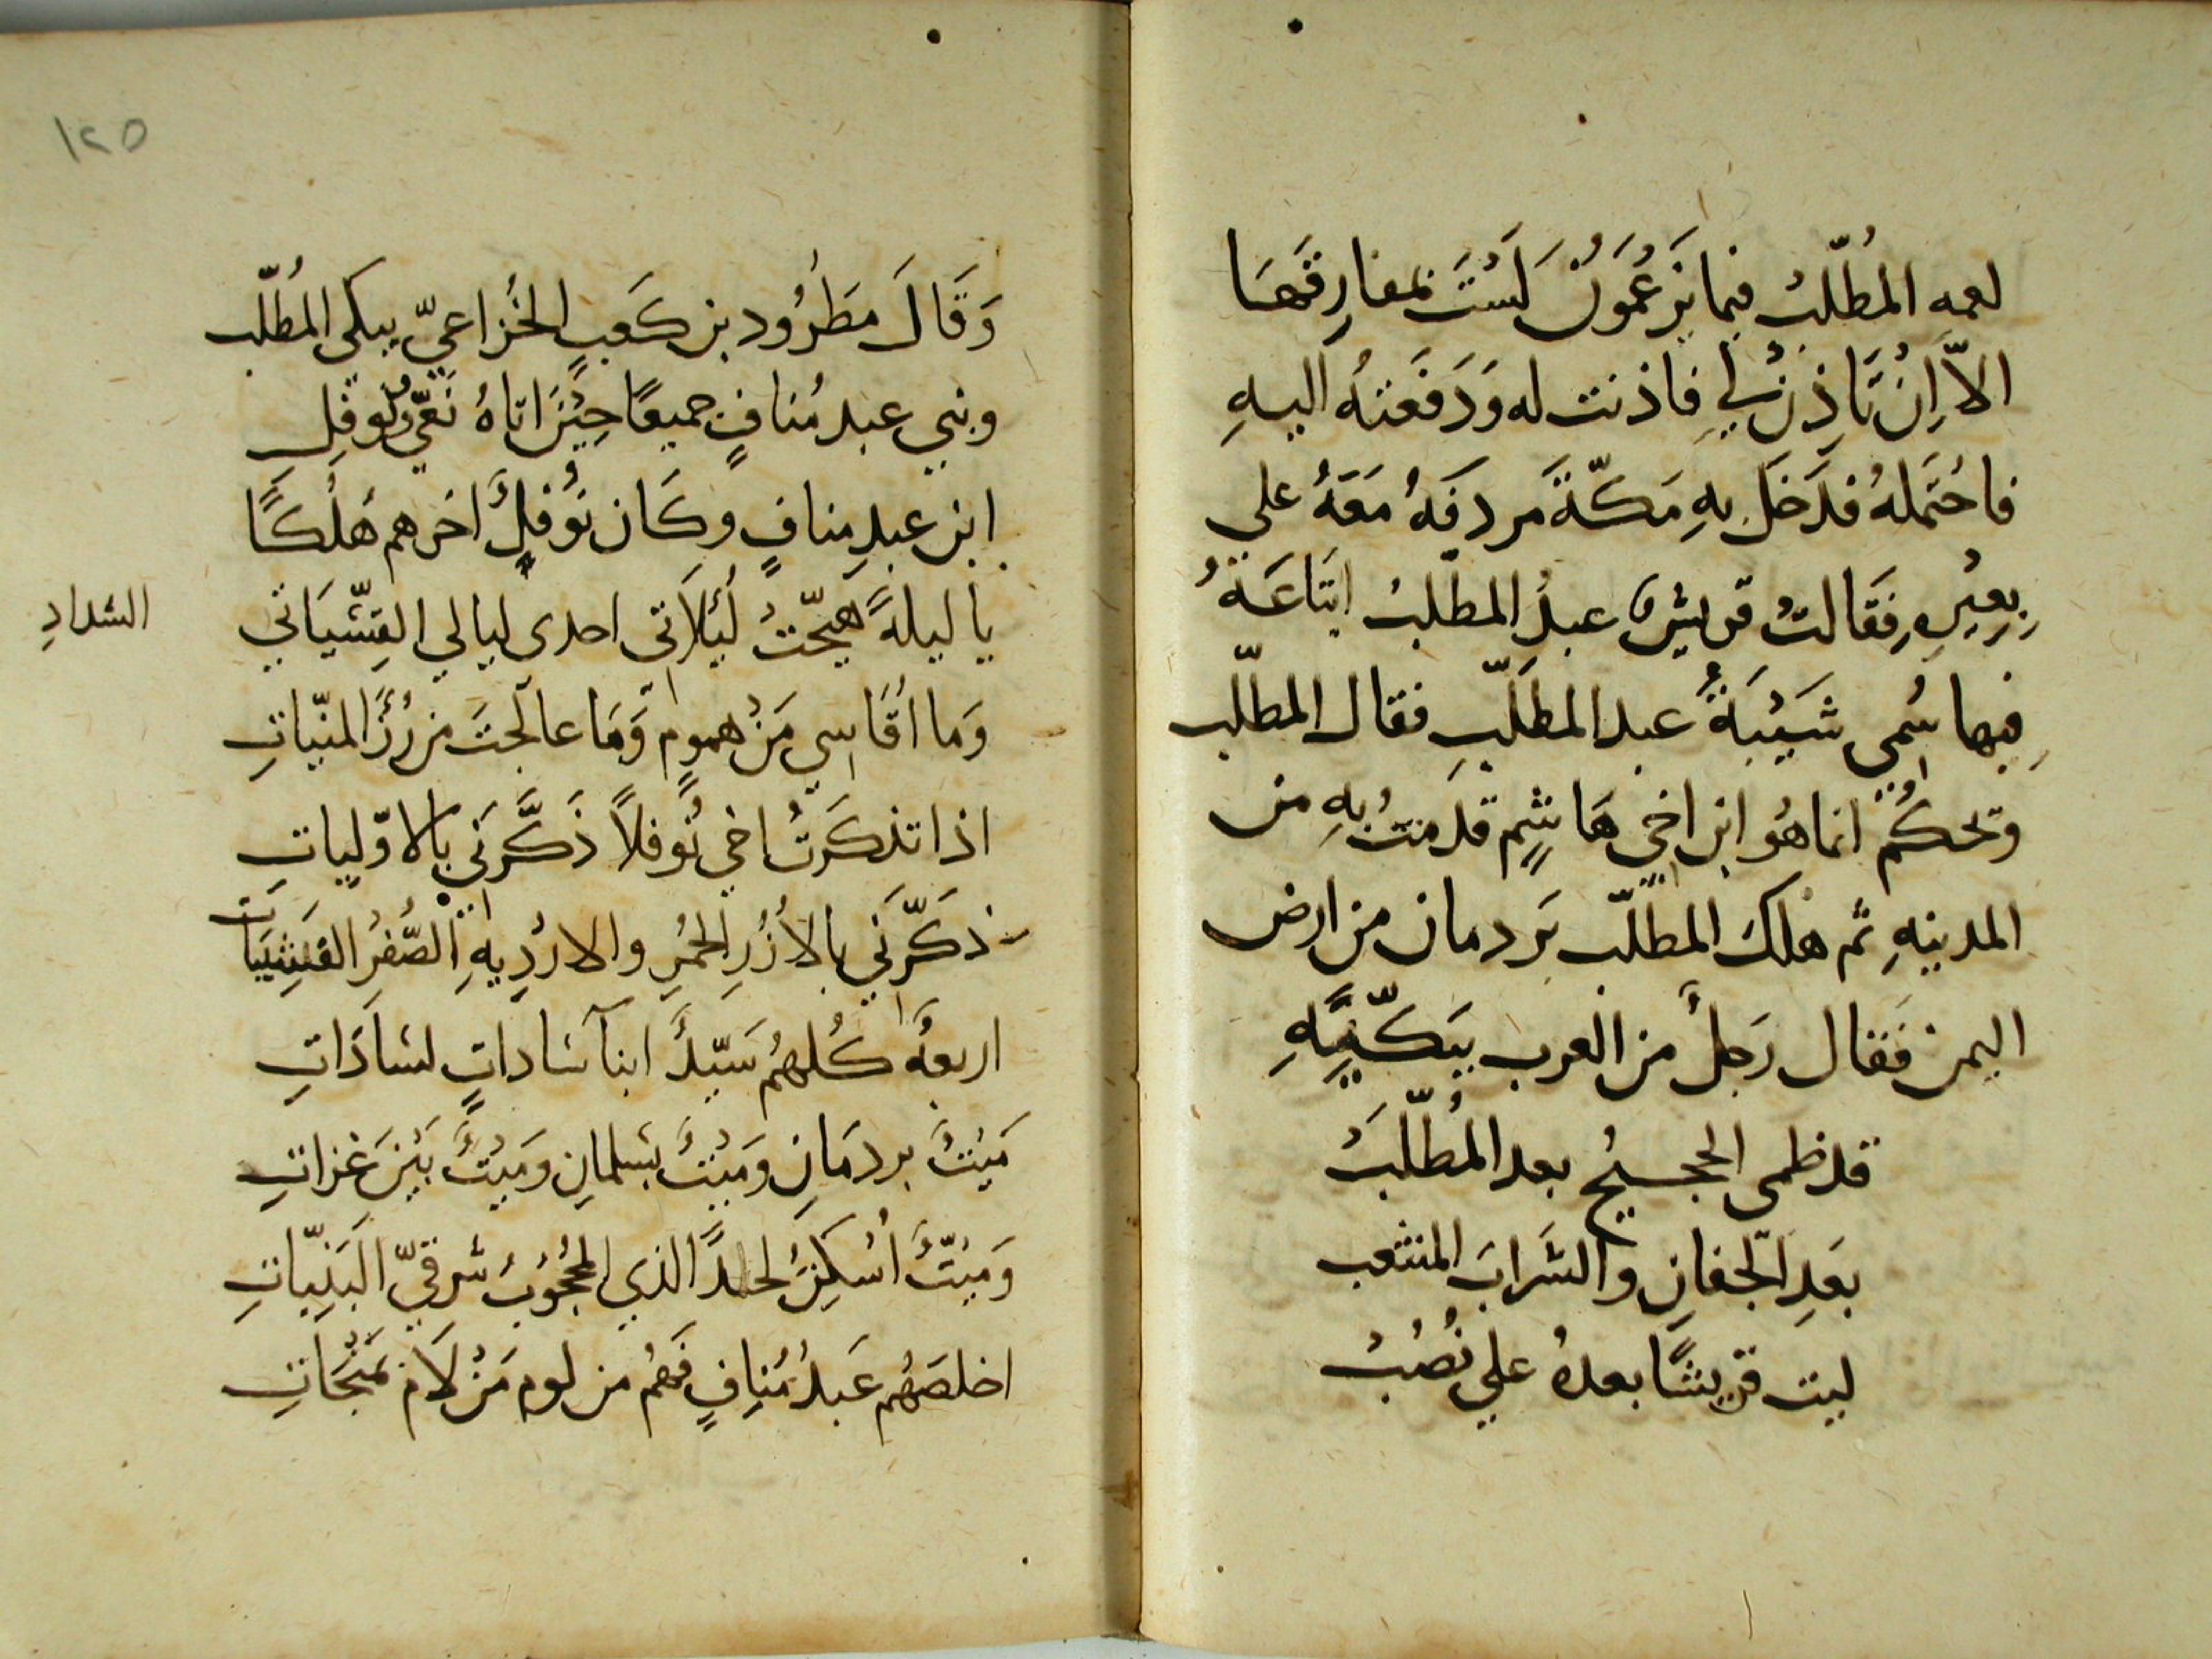 لعمه المُطّلبُ فيما يَزعُمَونُ لَسْتَ بمفارِقَهَا
الاّ اِنْ تَاذِن لي فاذنت له وَدَفَعَتهُ اليهِ
فاحْتَملهُ فدَخَلَ بهِ مَكّةَ مردفَهُ مَعَهُ على
بِعِيْرِهِ فقَالتْ قريشٌ عبدُ المطّلبُ ابتَاعَهُ
فِبها سُمي شَيْبَةُ عبد المطّلبِ فقال المطّلب
ويحكُم انما هُو ابن اخي هَاشِمٍ قدمتُ بهِ من
المدينهِ ثم هلكَ المطلّب بَردمان من ارض
اليمن فَقال رَجلٌ من العرب يبَكّيهِ
قد ظمى الحجيجُ بعد المُطّلَبْ
بعَدِ الجفانِ والشَرابَ المنثعب
ليت قريشًا بعدهُ علي نُصُبْ
١٢٥
وَقَالَ مَطرُود بن كَعبٍ الخُزاعيّ يبكى المُطّلب
وبني عبد مُنافٍ جميعًا حِيْنَ اتاهُ نَعّي نُوفلِ
ابن عبدِ منافٍ وكَان نوُفلٌ اخرهم هُلْكًا
يا ليلةً هيّجّتْ لَيْلاَتى احدى ليالي القِسّيَاتي
الشدادِ
وَما اُقَاسي مَنْ همومٍ وَمَا عالَجتَ من رُزْ المنيّاتِ
اذا تذكرَتُ اخي نُوفلاً ذَكَّرَني بالاوّلياتِ
ذكَّرَني بالاُزُرِ الحُمْرِ والارْدِيهِ الصُّفرُ القَشِيَباَت
اربعةُ كُلهُم سَيّدٌ ابنآ سَاداتٍ لسَادَاتِ
مَيْتُ بردمَانِ ومَيْتُ بسَلمانِ ومَيْتٌ بَيْنَ غزاتِ
وَمَيّتٌ اُسْكِنَ لحدًا الذي المحجُوُبُ شرقيّ البَنِيّاتِ
اخلصَهُم عَبدُ مُنِافٍ فَهُم من لوم مَنْ لاَم بمَنْجَاتِ